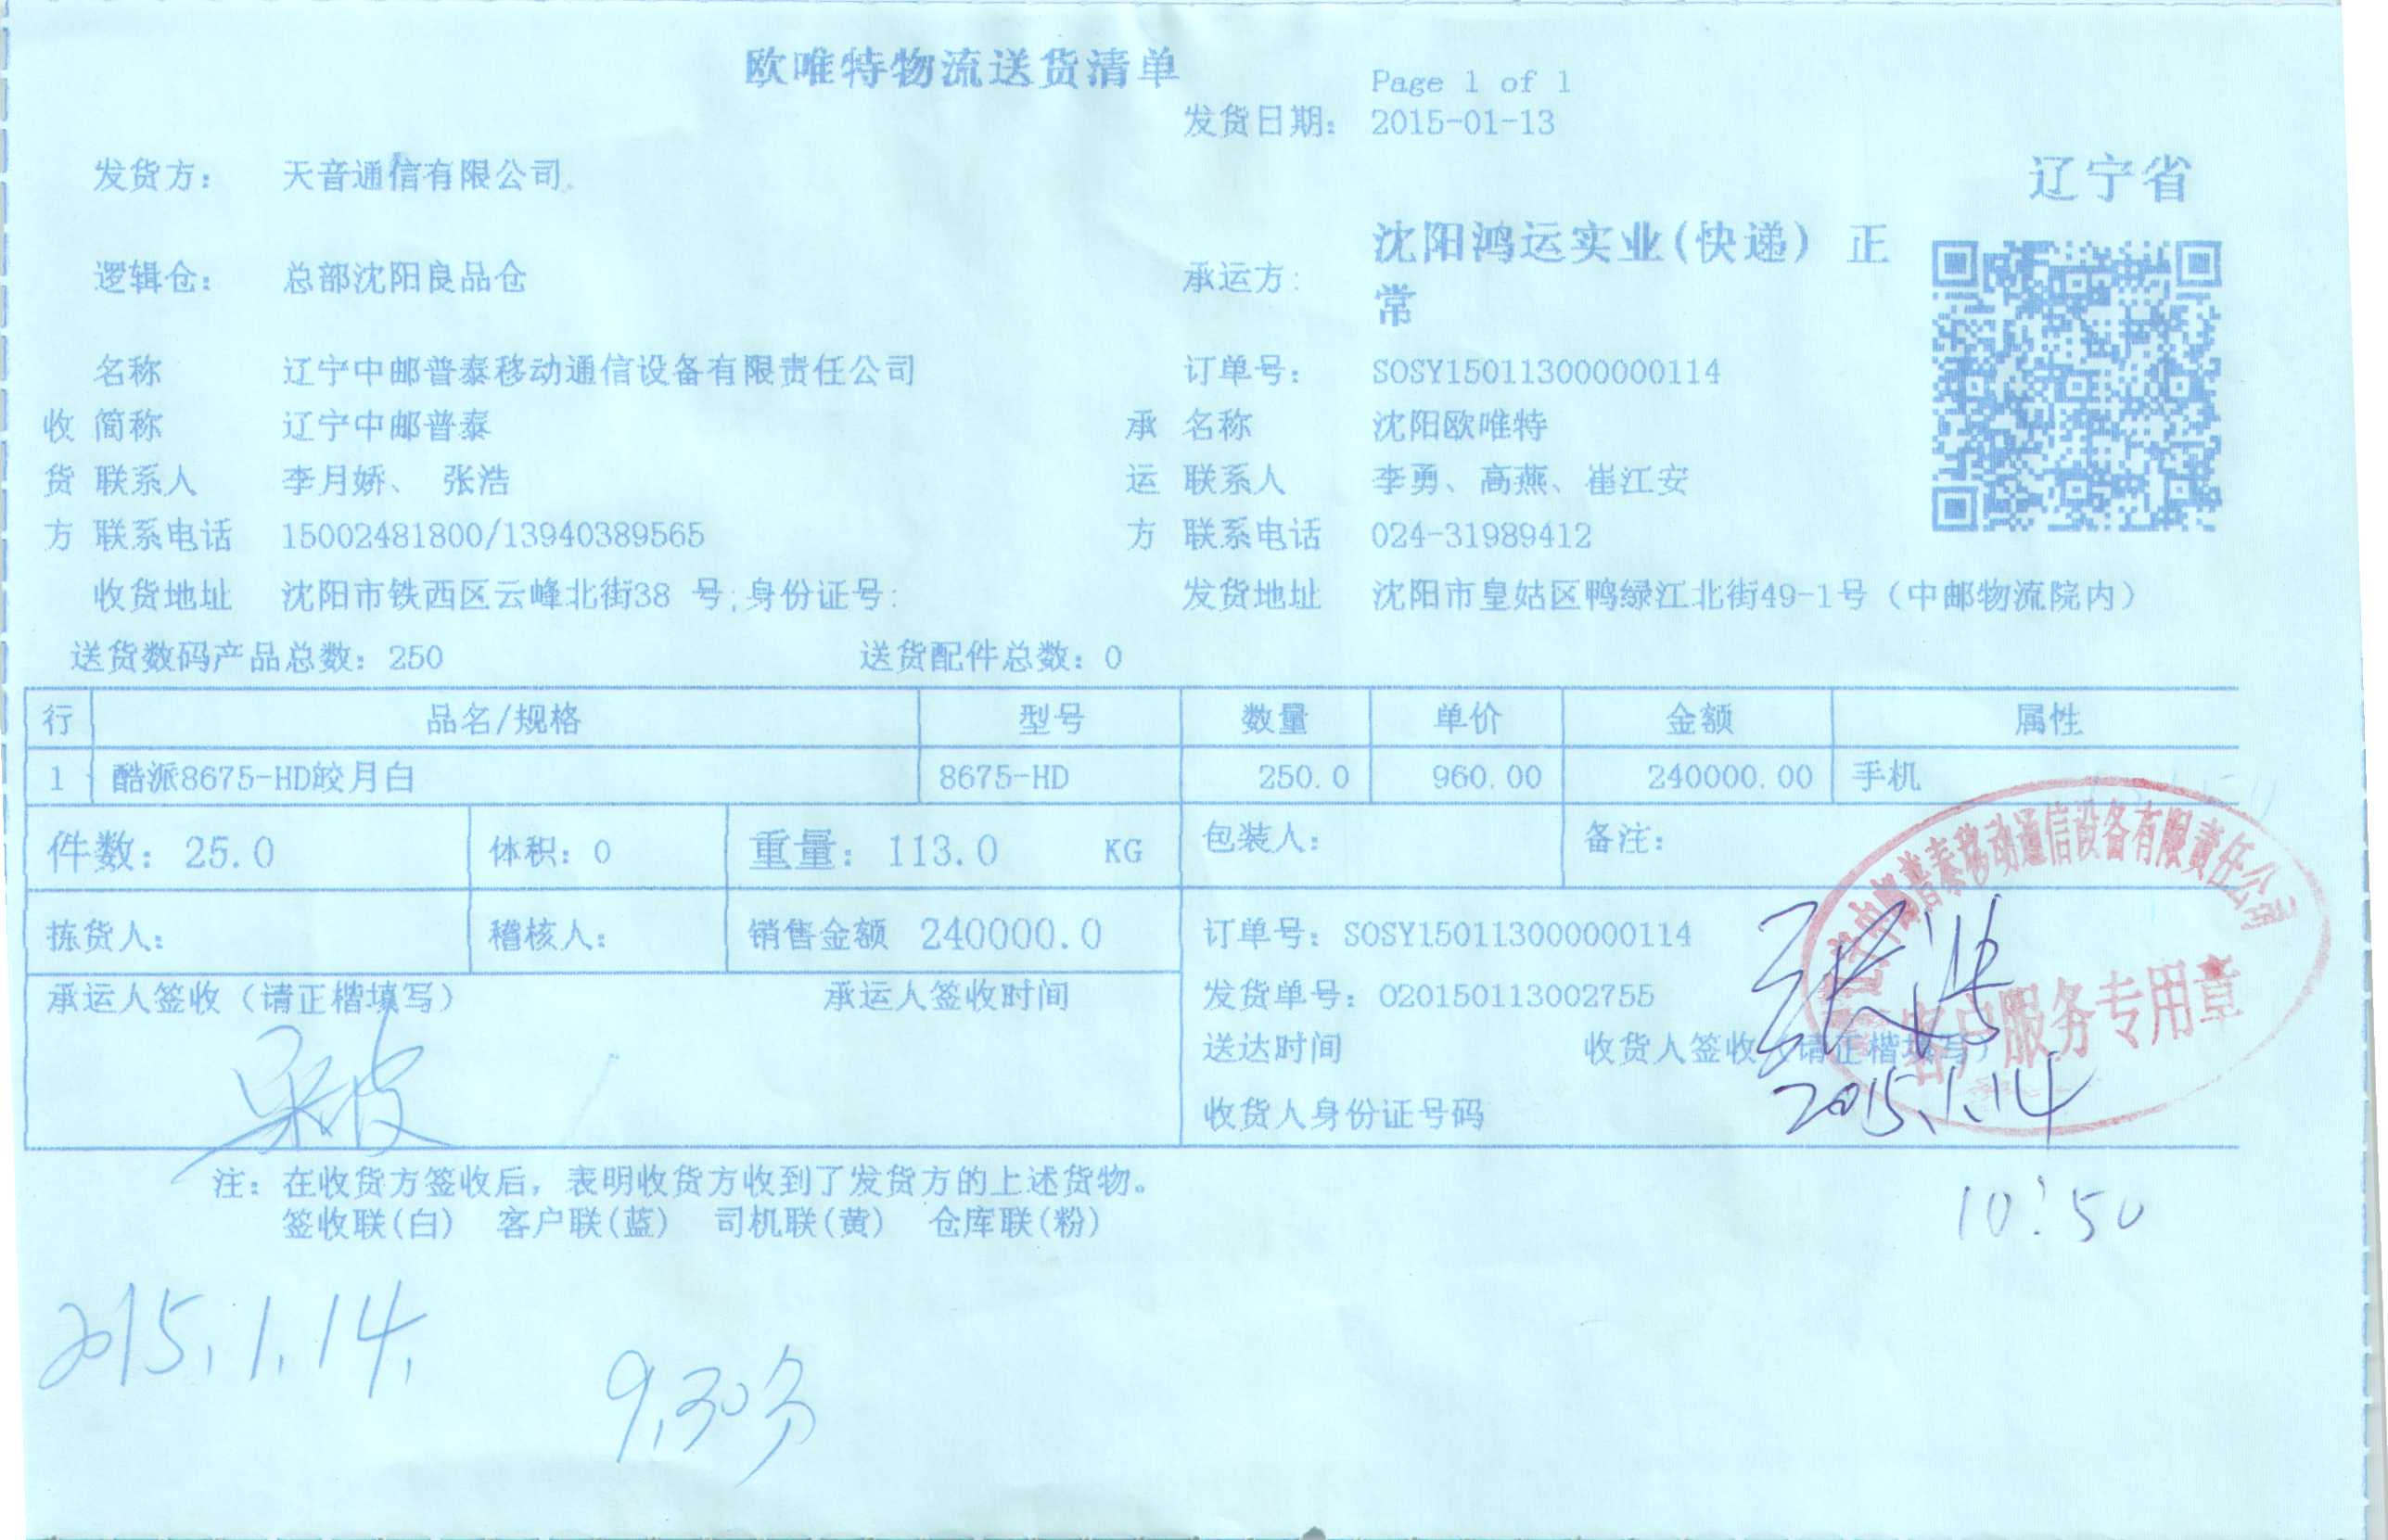 欧唯特物流送货清单
Page 1 of 1
发货日期： 2015-01-13
发货方： 天音通信有限公司
辽宁省
逻辑仓： 总部沈阳良品仓
承运方： 沈阳鸿运实业(快递) 正常
名称 辽宁中邮普泰移动通信设备有限责任公司 订单号： SOSY150113000000114
收 简称 辽宁中邮普泰 承 名称 沈阳欧唯特
货 联系人 李月娇、 张浩 运 联系人 李勇、高燕、崔江安
方 联系电话 15002481800/13940389565 方 联系电话 024-31989412
收货地址 沈阳市铁西区云峰北街38 号;身份证号: 发货地址 沈阳市皇姑区鸭绿江北街49-1号（中邮物流院内）
送货数码产品总数：250 送货配件总数：0
行 品名/规格 型号 数量 单价 金额 属性
1 酷派8675-HD皎月白 8675-HD 250.0 960.00 240000.00 手机
件数：25.0 体积：0 重量：113.0 KG 包装人： 备注：
拣货人： 稽核人： 销售金额 240000.0 订单号：SOSY150113000000114
承运人签收（请正楷填写） 承运人签收时间 发货单号：020150113002755
送达时间 收货人签收（请正楷填写）
收货人身份证号码
张浩
2015.1.14
10:50
辽宁中邮普泰移动通信设备有限责任公司
客户服务专用章
注：在收货方签收后，表明收货方收到了发货方的上述货物。
签收联(白) 客户联(蓝) 司机联(黄) 仓库联(粉)
2015.1.14.
9.30分